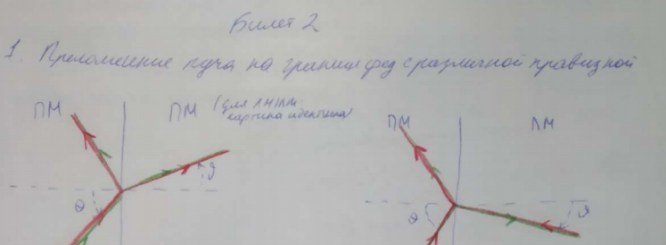 Билет 2
1. Преломление луча на границе фаз с различной правизной
ПМ ПМ (для ЛМ/ЛМ
картина идентична)
ПМ ЛМ
θ θ